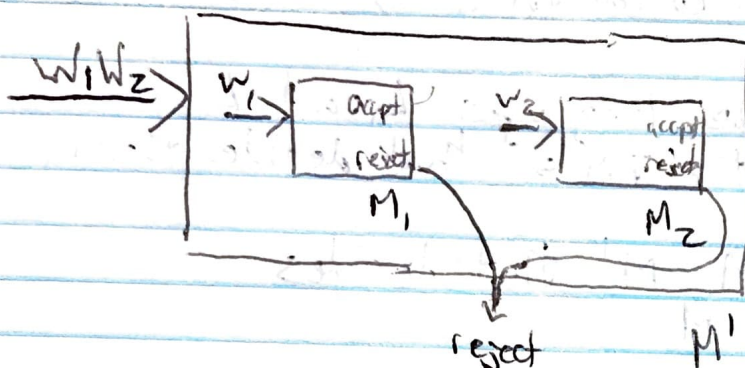 W₁W₂
W₁
accpt
reject
M₁
W₂
accpt
reject
M₂
reject
M'